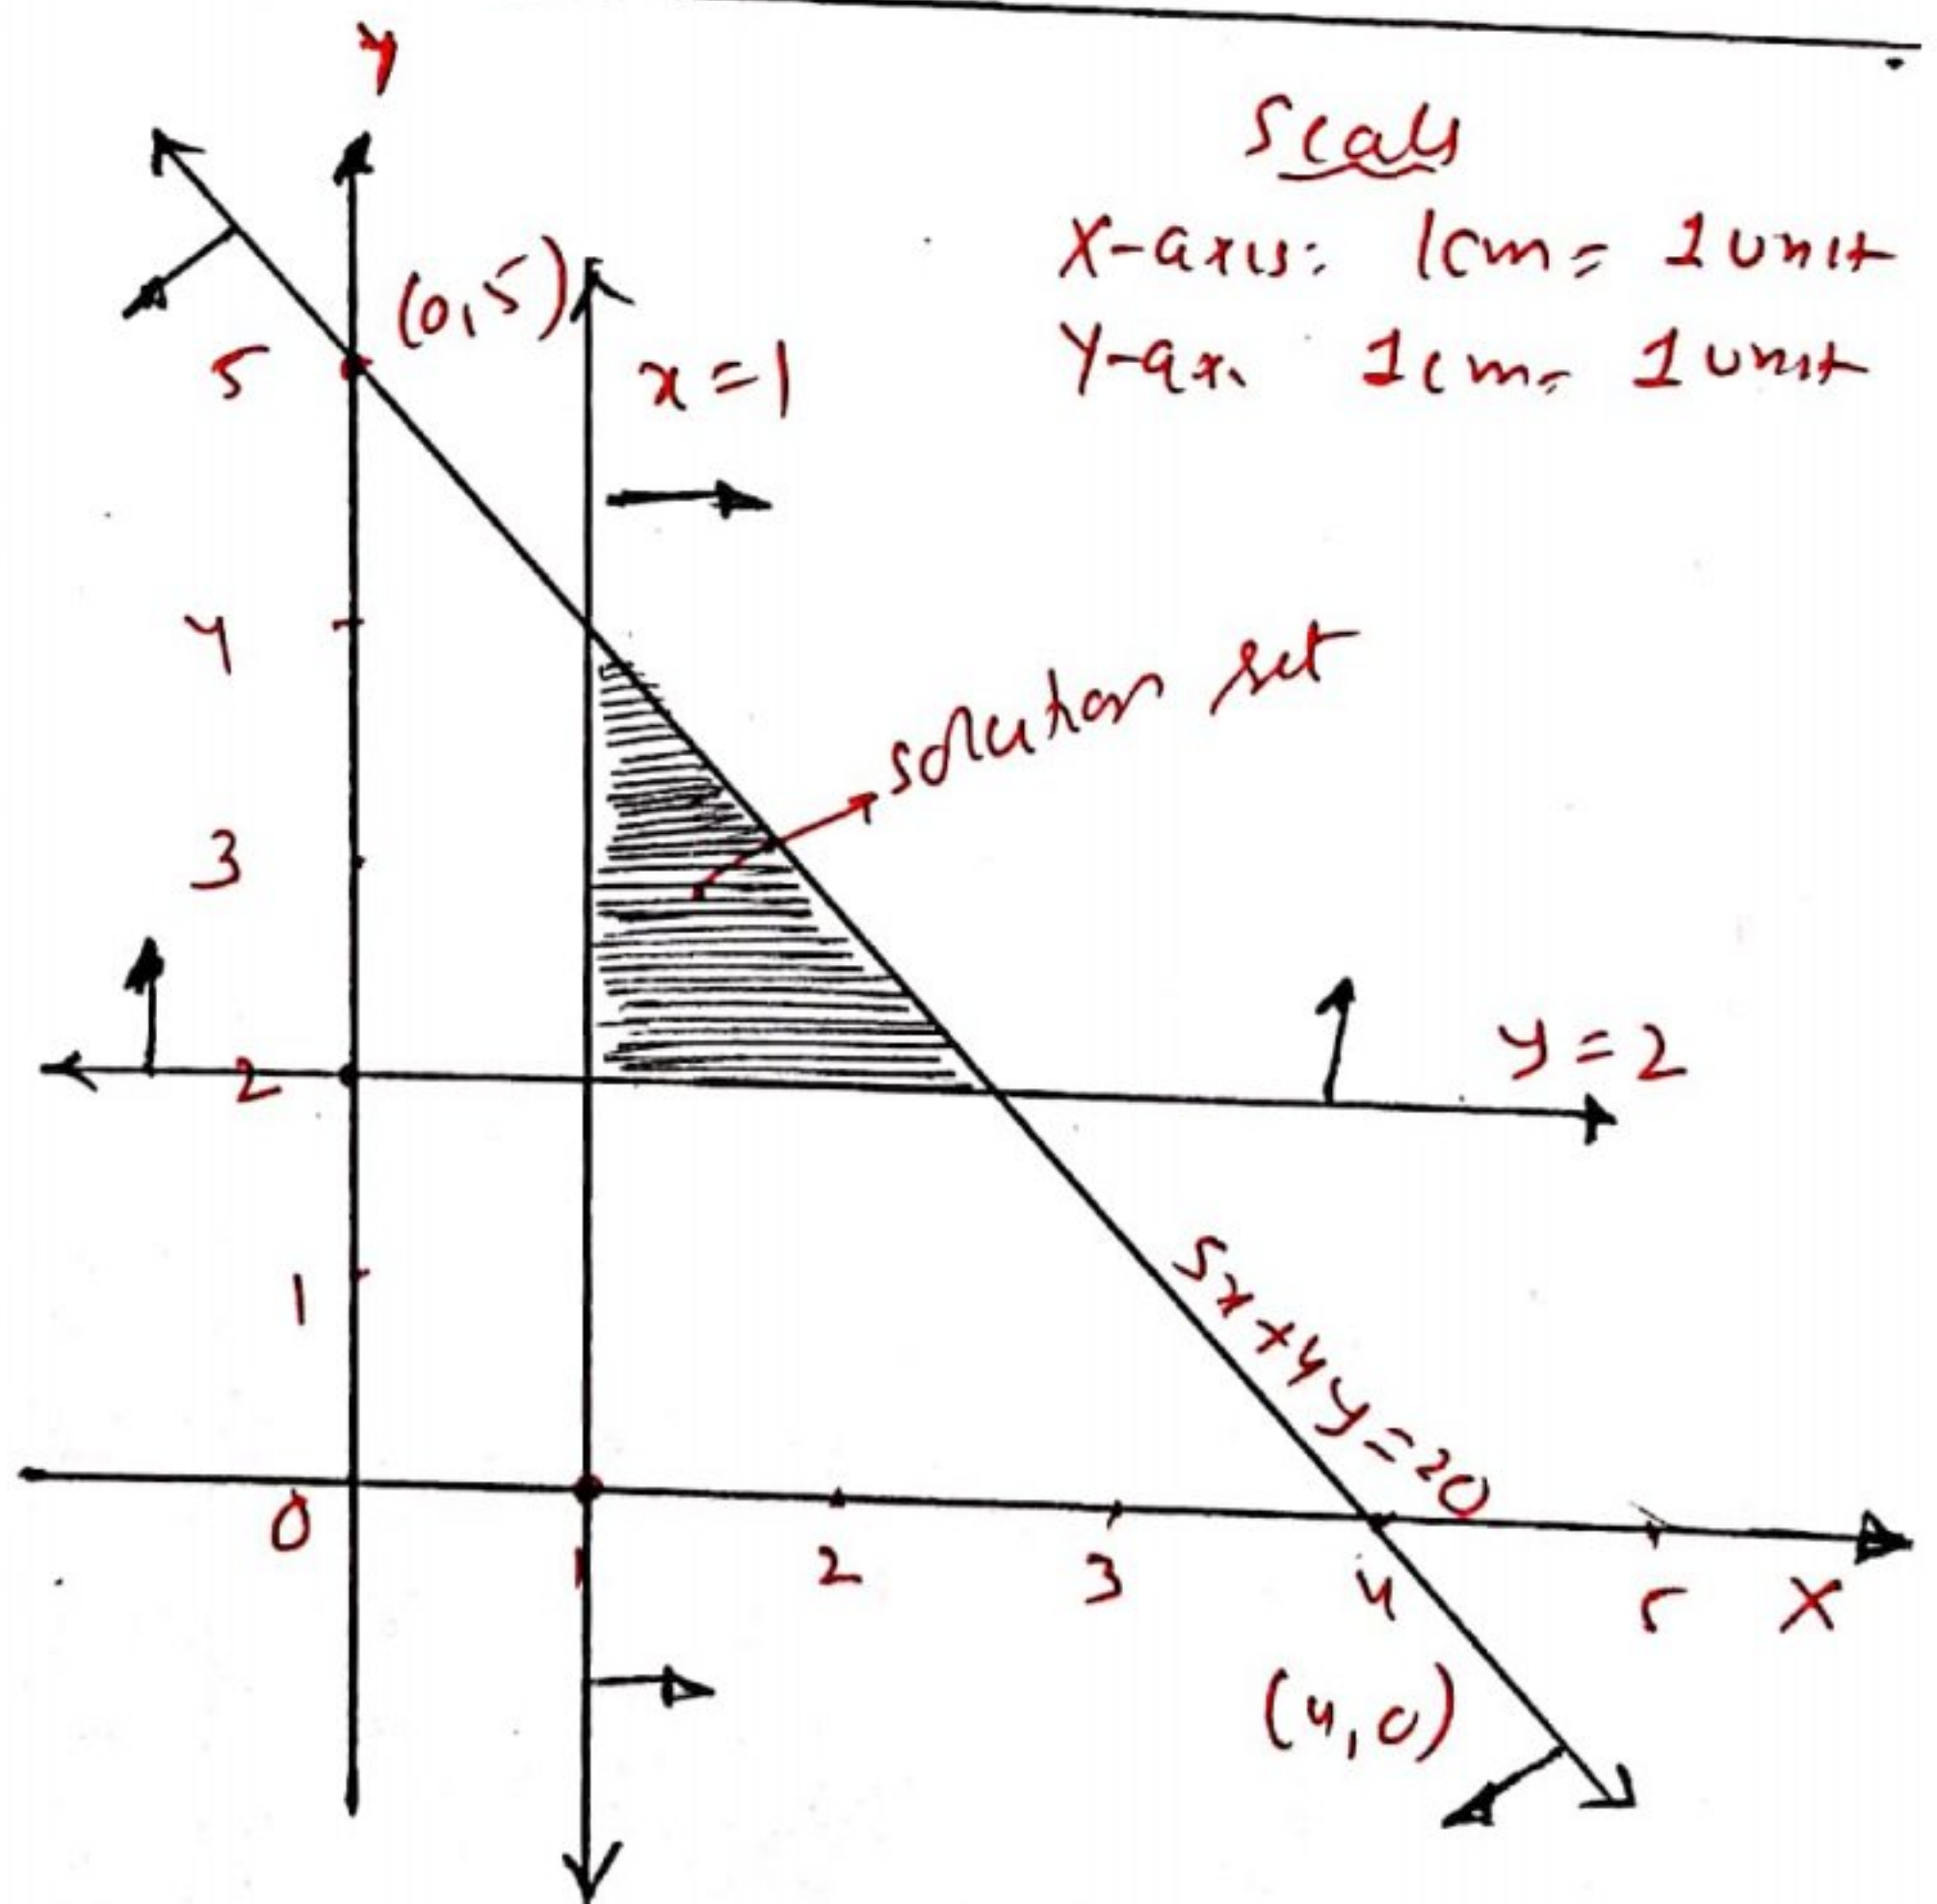 Y
Scale
X-axis: 1cm = 1 unit
Y-ax. 1cm = 1 unit
(0,5)
5
x=1
4
solution set
3
y=2
2
5x+4y=20
1
0
1 2 3 4 5 X
(4,0)